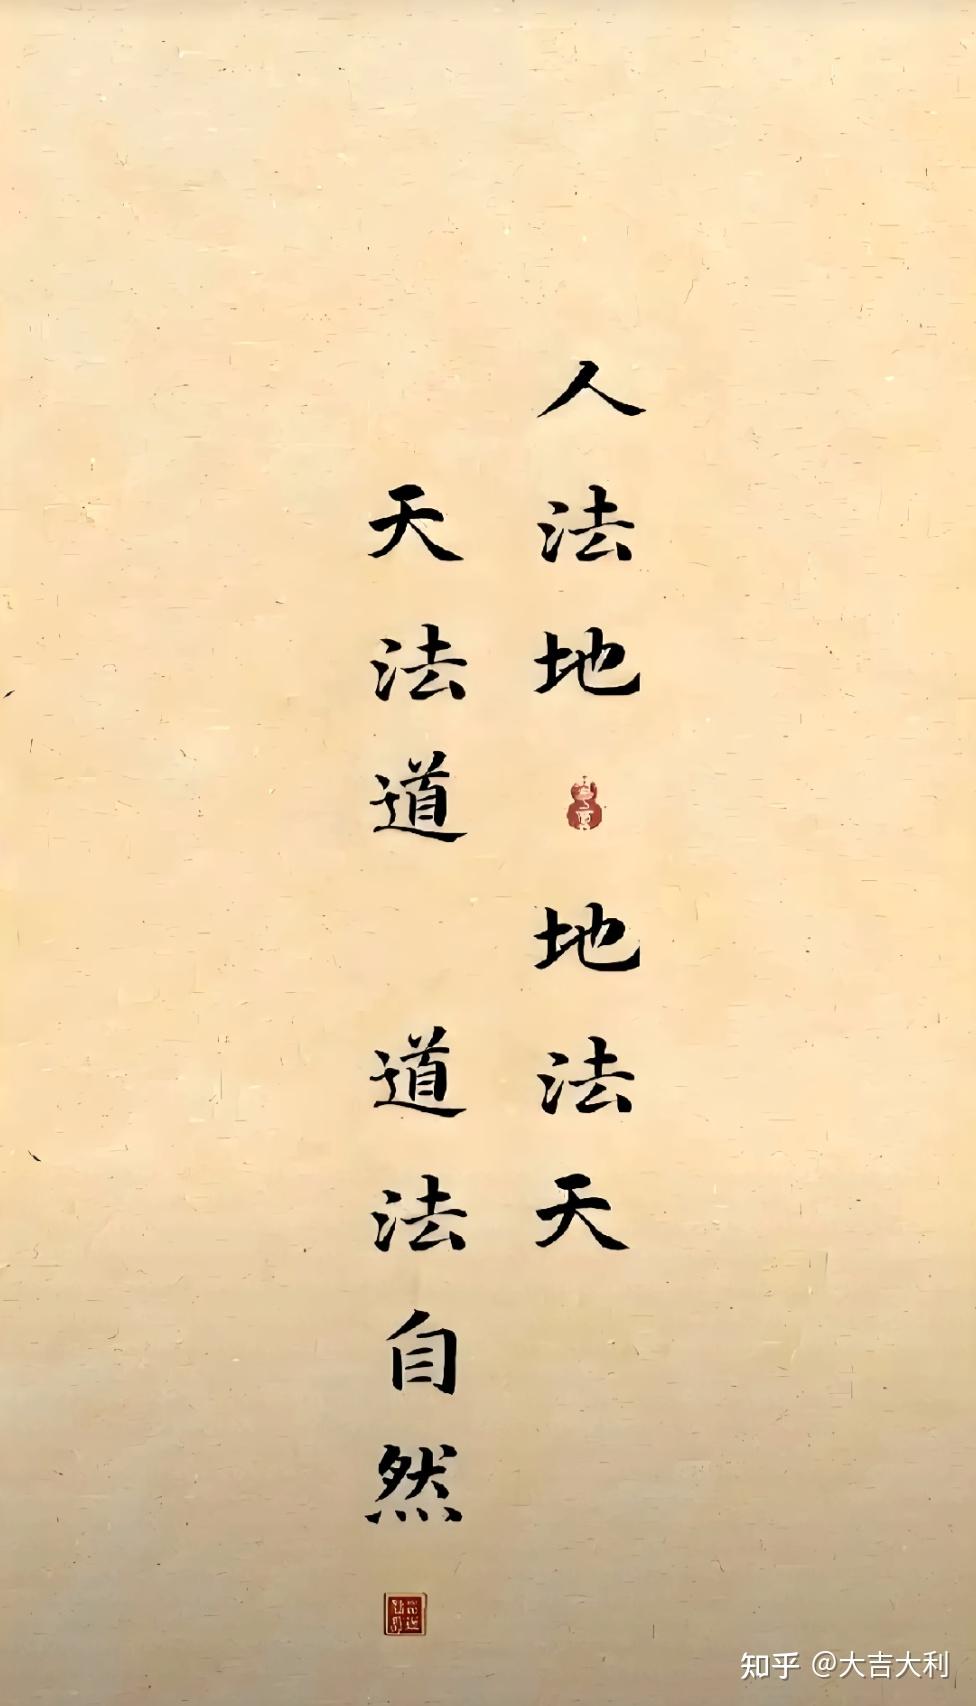 人法地 地法天
天法道 道法自然
知乎 @大吉大利